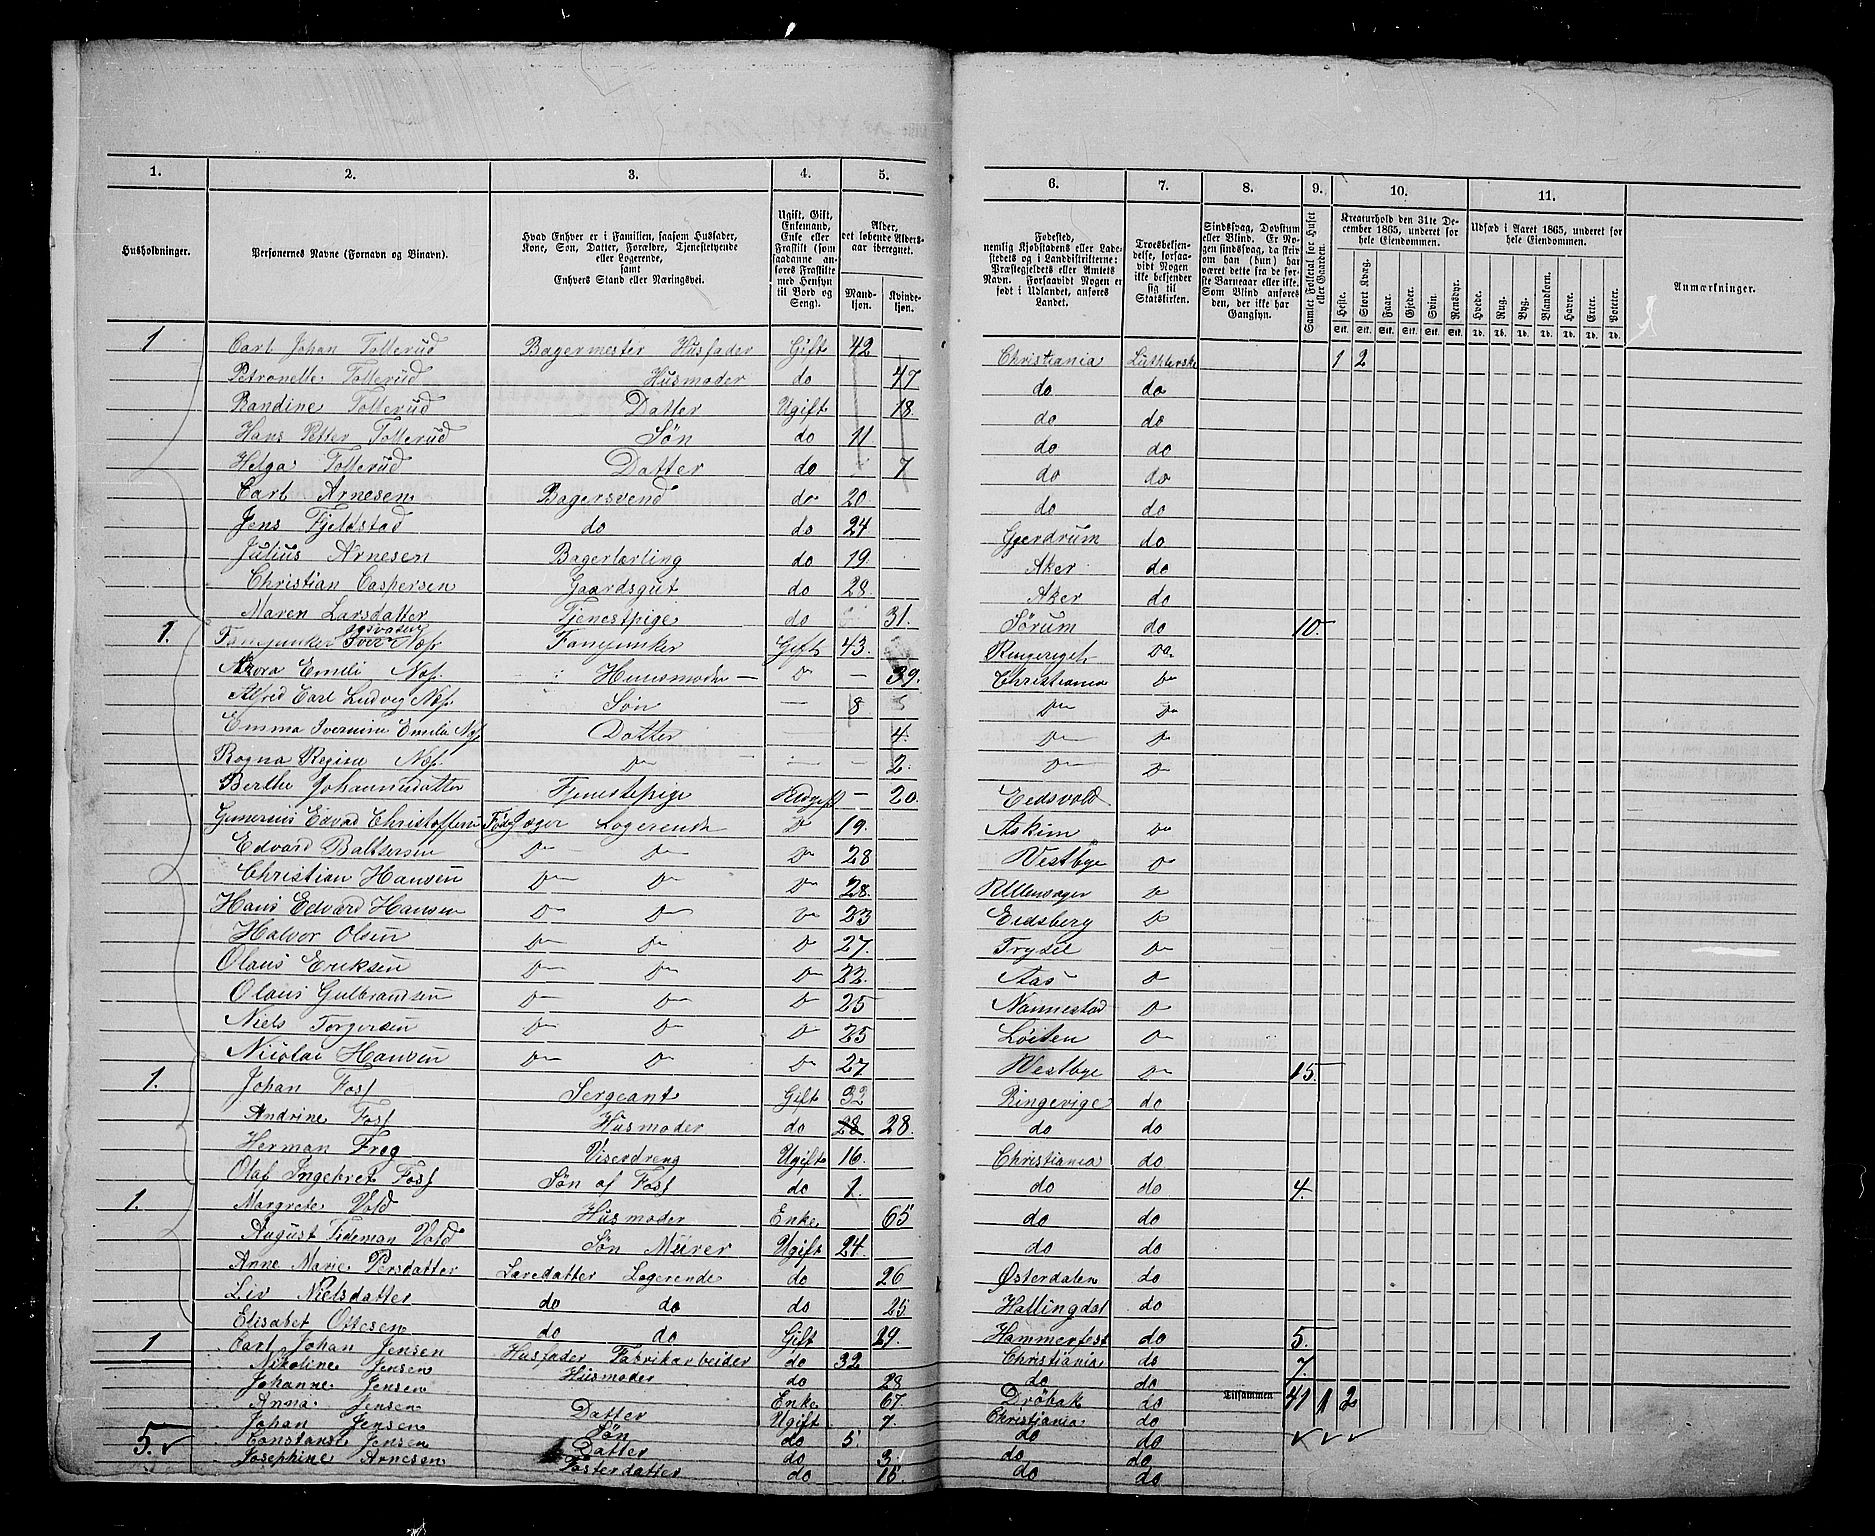 1. 2. 3. 4. 5. 6. 7. 8. 9. 10. 11.
Husholdninger.
Personernes Navne (Fornavn og Binavn).
Hvad Enhver er i Familien, saasom Husfader, Kone, Søn, Datter, Forældre, Tjenestetyende eller Logerende, samt Enhvers Stand eller Næringsvei.
Ugift, Gift, Enkemand, Enke eller Fraskilt (som saadanne anføres Fraskilte med Hensyn til Bord og Seng).
Alder, det løbende Aldersaar iberegnet.
Mandkjøn. Kvindekjøn.
Fødested, nemlig Kjøbstadens eller Ladestedets og i Landdistrikterne: Præstegjeldets eller Amtets Navn. Forsaavidt Nogen er født i Udlandet, anføres Landet.
Troesbekjendelse, forsaavidt Nogen ikke bekjender sig til Statskirken.
Sindssvag, Døvstum eller Blind. Er Nogen sindssvag, da skriv om han (hun) har været dette fra de første Barneaar eller ikke. Som Blind anføres den, der ikke har Gangsyn.
Samlet Folketal for Huset eller Gaarden.
Kreaturhold den 31te December 1865, underet for hele Eiendommen.
Heste. Stort Kvæg. Faar. Gjeder. Svin. Rensdyr.
Stk. Stk. Stk. Stk. Stk. Stk.
Udsæd i Aaret 1865, underet for hele Eiendommen.
Hvede. Rug. Byg. Blandkorn. Havre. Erter. Poteter.
Td. Td. Td. Td. Td. Td. Td.
Anmærkninger.
1 Carl Johan Tollerud Bagermester Husfader Gift 42 Christiania Lutherske 1 2
Petronelle Tollerud Husmoder do 47 do do
Randine Tollerud Datter Ugift 18 do do
Hans Petter Tollerud Søn do 11 do do
Helga Tollerud Datter do 7 do do
Carl Arnesen Bagersvend do 20 do do
Jens Fjeldstad do do 24 Gjerdrum do
Julius Arnesen Bagerlærling do 19 Aker do
Christian Caspersen Gaardsgut do 28 Aker do
Maren Larsdatter Tjenestpige do 31 Sørum do 10
1. Fanejunker Iver Næs Fanejunker Gift 43 Ringeriget Do
Emili Næs Huusmoder — Do — 39. Christiania Do
Alfred Carl Ludvig Næs Søn — 8 Do Do
Emma Iverine Emilie Næs Datter 4. Do Do
Ragna Regine Næs Do — — 2. Do Do
Berthe Johannesdatter Tjenestepige Uugift — 20. Eidsvold
Gunerius Edvard Christoffersen Jæger Logerende Do 19. Askim Do
Edvard Baltsersen Do Do Do 28 Vestbye Do
Christian Hansen Do Do Do 28. Ullensager Do
Hans Edvard Hansen Do Do Do 23 Eidsberg Do
Halvor Olsen Do Do Do 27. Trysil Do
Olaus Eriksen Do Do Do 22. Aas Do
Olaus Gulbrandsen Do Do Do 25 Nannestad Do
Niels Torgersen Do Do Do 25 Løiten Do
Nicolai Hansen Do Do Do 27. Vestbye Do 15.
1. Johan Foss Sergeant Gift 32 Ringerige do
Andrine Foss Husmoder do 28 28. do do
Herman Freg Viserdreng Ugift 16 Christiania do
Olaf Ingebret Foss Søn af Foss do 1. do do 4.
1. Margrete Vold Husmoder Enke 65 do do
August Tideman Vold Søn Murer Ugift 24. do do
Anne Marie Persdatter Læredatter Logerende do 26 Østerdalen do
Liv Nielsdatter do do do 25. Hallingdal do
Elisabet Ottesen do do Gift 29. Hammerfest do 5.
1 Carl Johan Jensen Husfader Fabrikarbeider do 32 Christiania do 7.
Nikoline Jensen Husmoder do 28 do do
Johanne Jensen Enke 67. Drøbak do Tilsammen 41 1 2
Anna Jensen Datter Ugift 7. Christiania do
Johan Jensen Søn do 5. do do
Constanse Jensen Datter do 3. do do
5. Josephine Arnesen Fosterdatter do 15. do do